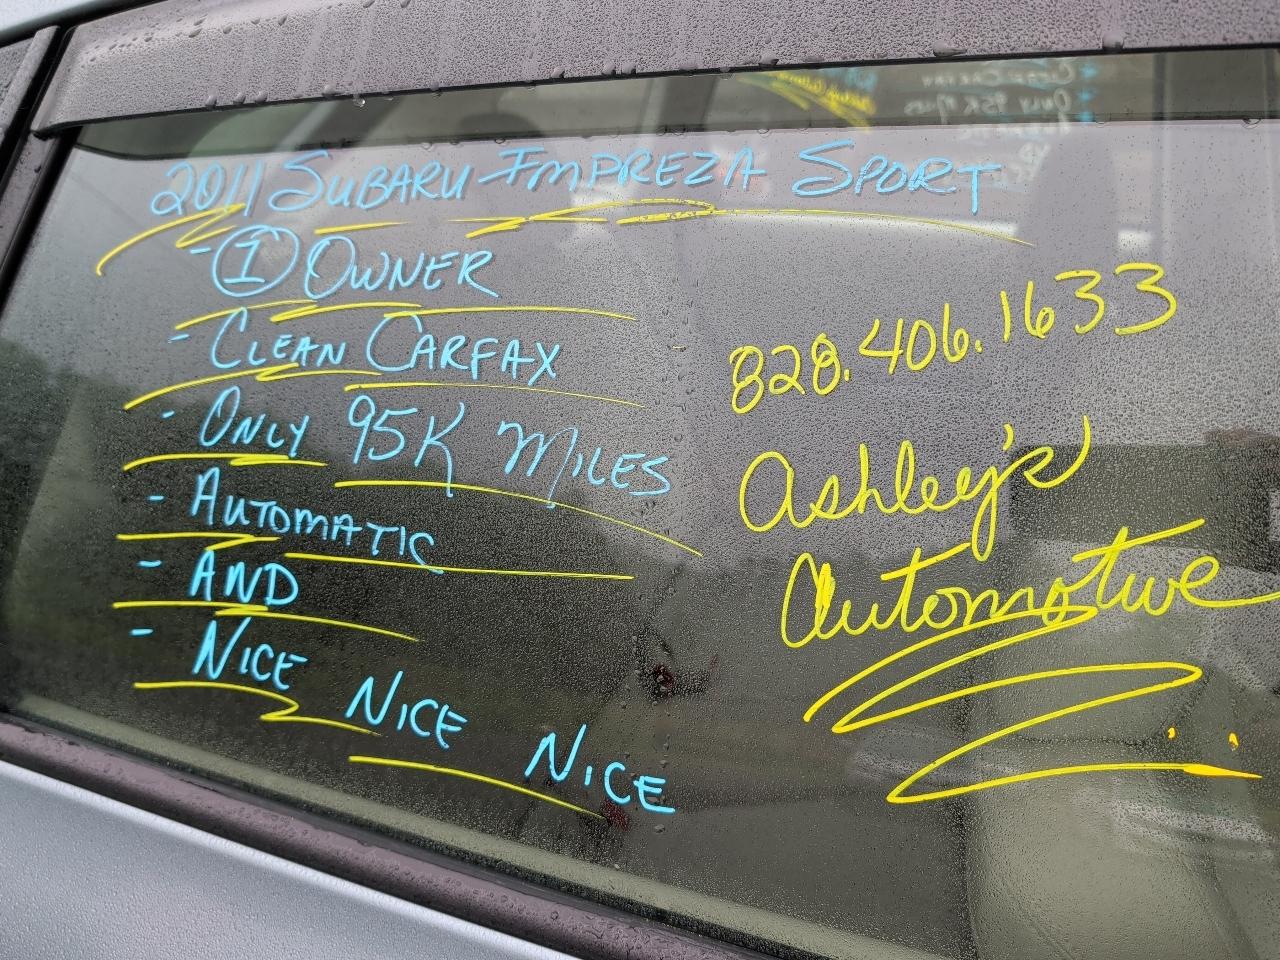 2011 SUBARU IMPREZA SPORT
- 1 OWNER
- CLEAN CARFAX
- ONLY 95K MILES
- AUTOMATIC
- AND
- NICE NICE NICE
828.406.1633
Ashley's
Automotive